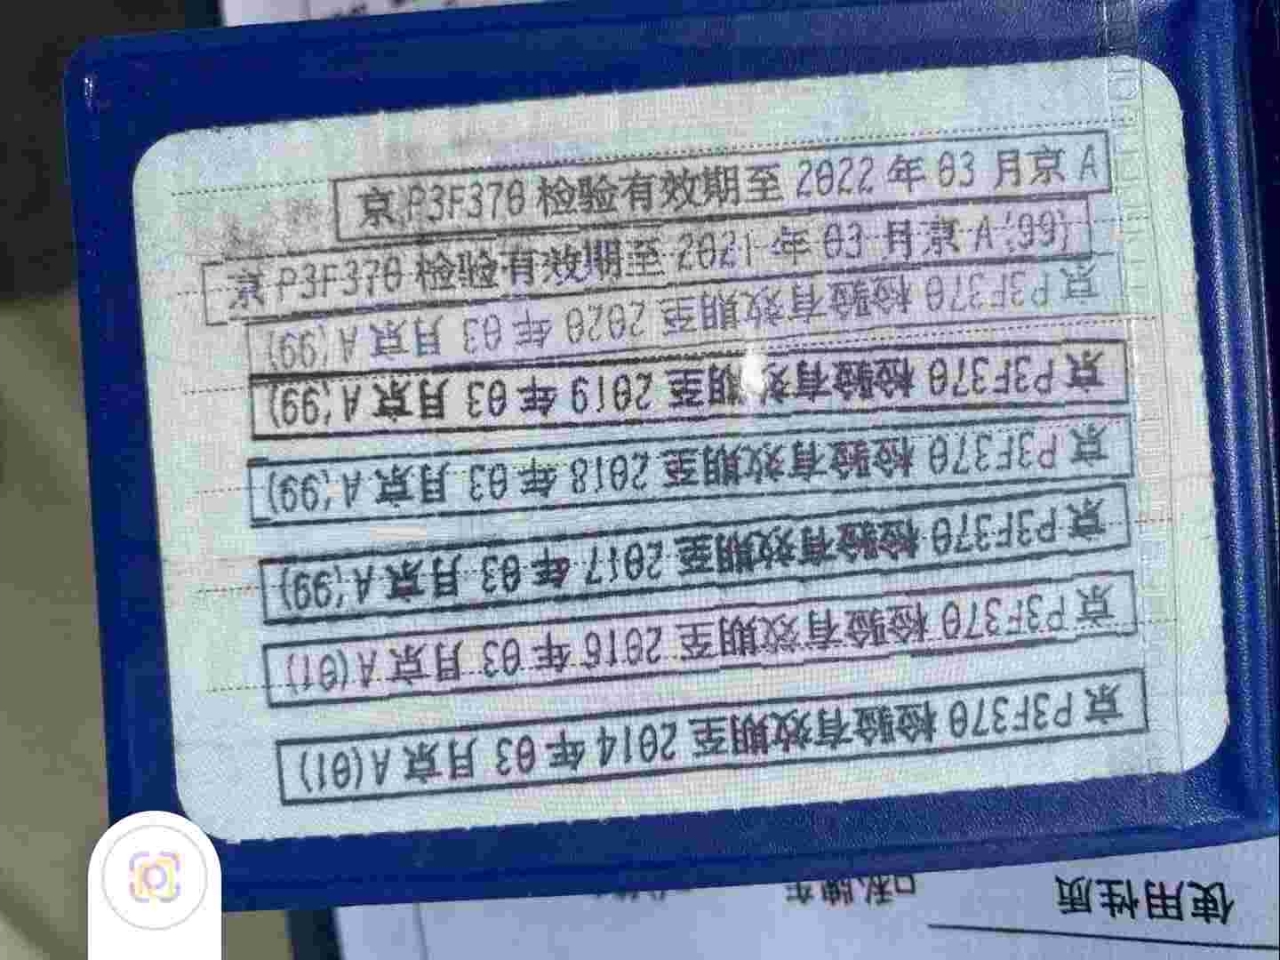 京P3F370 检验有效期至 2022 年 03 月京 A
京P3F370 检验有效期至 2021 年 03 月京 A(99)
京P3F370 检验有效期至 2020 年 03 月京 A(99)
京P3F370 检验有效期至 2019 年 03 月京 A(99)
京P3F370 检验有效期至 2018 年 03 月京 A(99)
京P3F370 检验有效期至 2017 年 03 月京 A(99)
京P3F370 检验有效期至 2016 年 03 月京 A(01)
京P3F370 检验有效期至 2014 年 03 月京 A(01)
使用性质 口私牌车